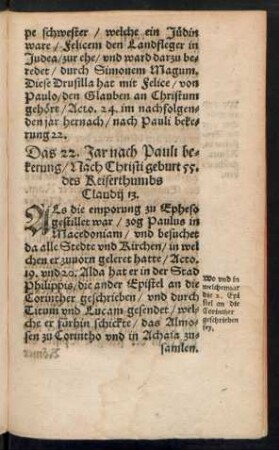 pe schwester / welche ein Jüdin
ware / Felicem den Landfleger in
Judea / zur ehe / vnd ward darzu be-
redet / durch Simonem Magum.
Diese Drusilla hat mit Felice / von
Paulo / den Glauben an Christum
gehört / Acto. 24. im nachfolgen-
den jar hernach / nach Pauli beke-
rung 22.
Das 22. Jar nach Pauli be-
kerung / Nach Christi geburt 55.
des Keiserthumbs
Claudij 13.
Als die emporung zu Epheso
gestillet war / zog Paulus in
Macedoniam / vnd besuchet
da alle Stedte vnd Kirchen / in wel-
chen er zuuorn geleret hatte / Acto.
19. vnd 20. Alda hat er in der Stad
Philippis / die ander Epistel an die
Corinther geschrieben / vnd durch
Titum vnd Lucam gesendet / wel-
che er fürhin schickte / das Almo-
sen zu Corintho vnd in Achaia zu-
samlen.
Wo vnd in
welchem jar
die 2. Epi
stel an die
Corinther
geschrieben
sey.